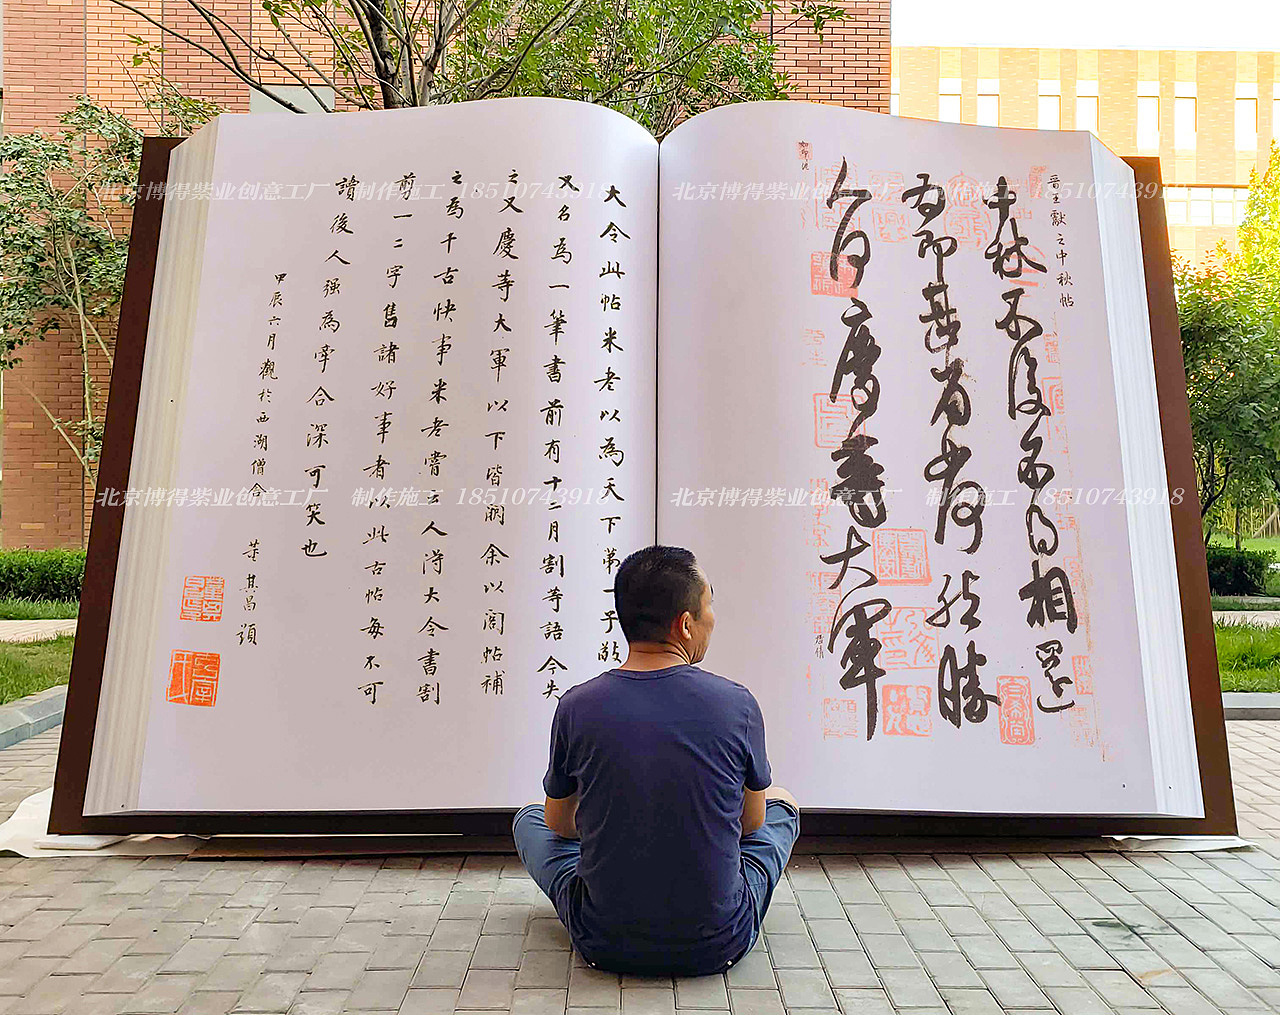 晉王獻之中秋帖
中秋不復不得相還
為即甚省如何然勝
人何慶等大軍
大令此帖米老以為天下第一子敬
又名為一筆書前有十二月割等語今失
之又慶等大軍以下皆闕余以閣帖補
之為千古快事米老嘗云人得大令書割
剪一二字售諸好事者以此古帖每不可
讀後人強為牽合深可笑也
甲辰六月觀於西湖僧舍 董其昌題
北京博得紫业创意工厂 制作施工 18510743918
北京博得紫业创意工厂 制作施工 18510743918
北京博得紫业创意工厂 制作施工 18510743918
北京博得紫业创意工厂 制作施工 18510743918